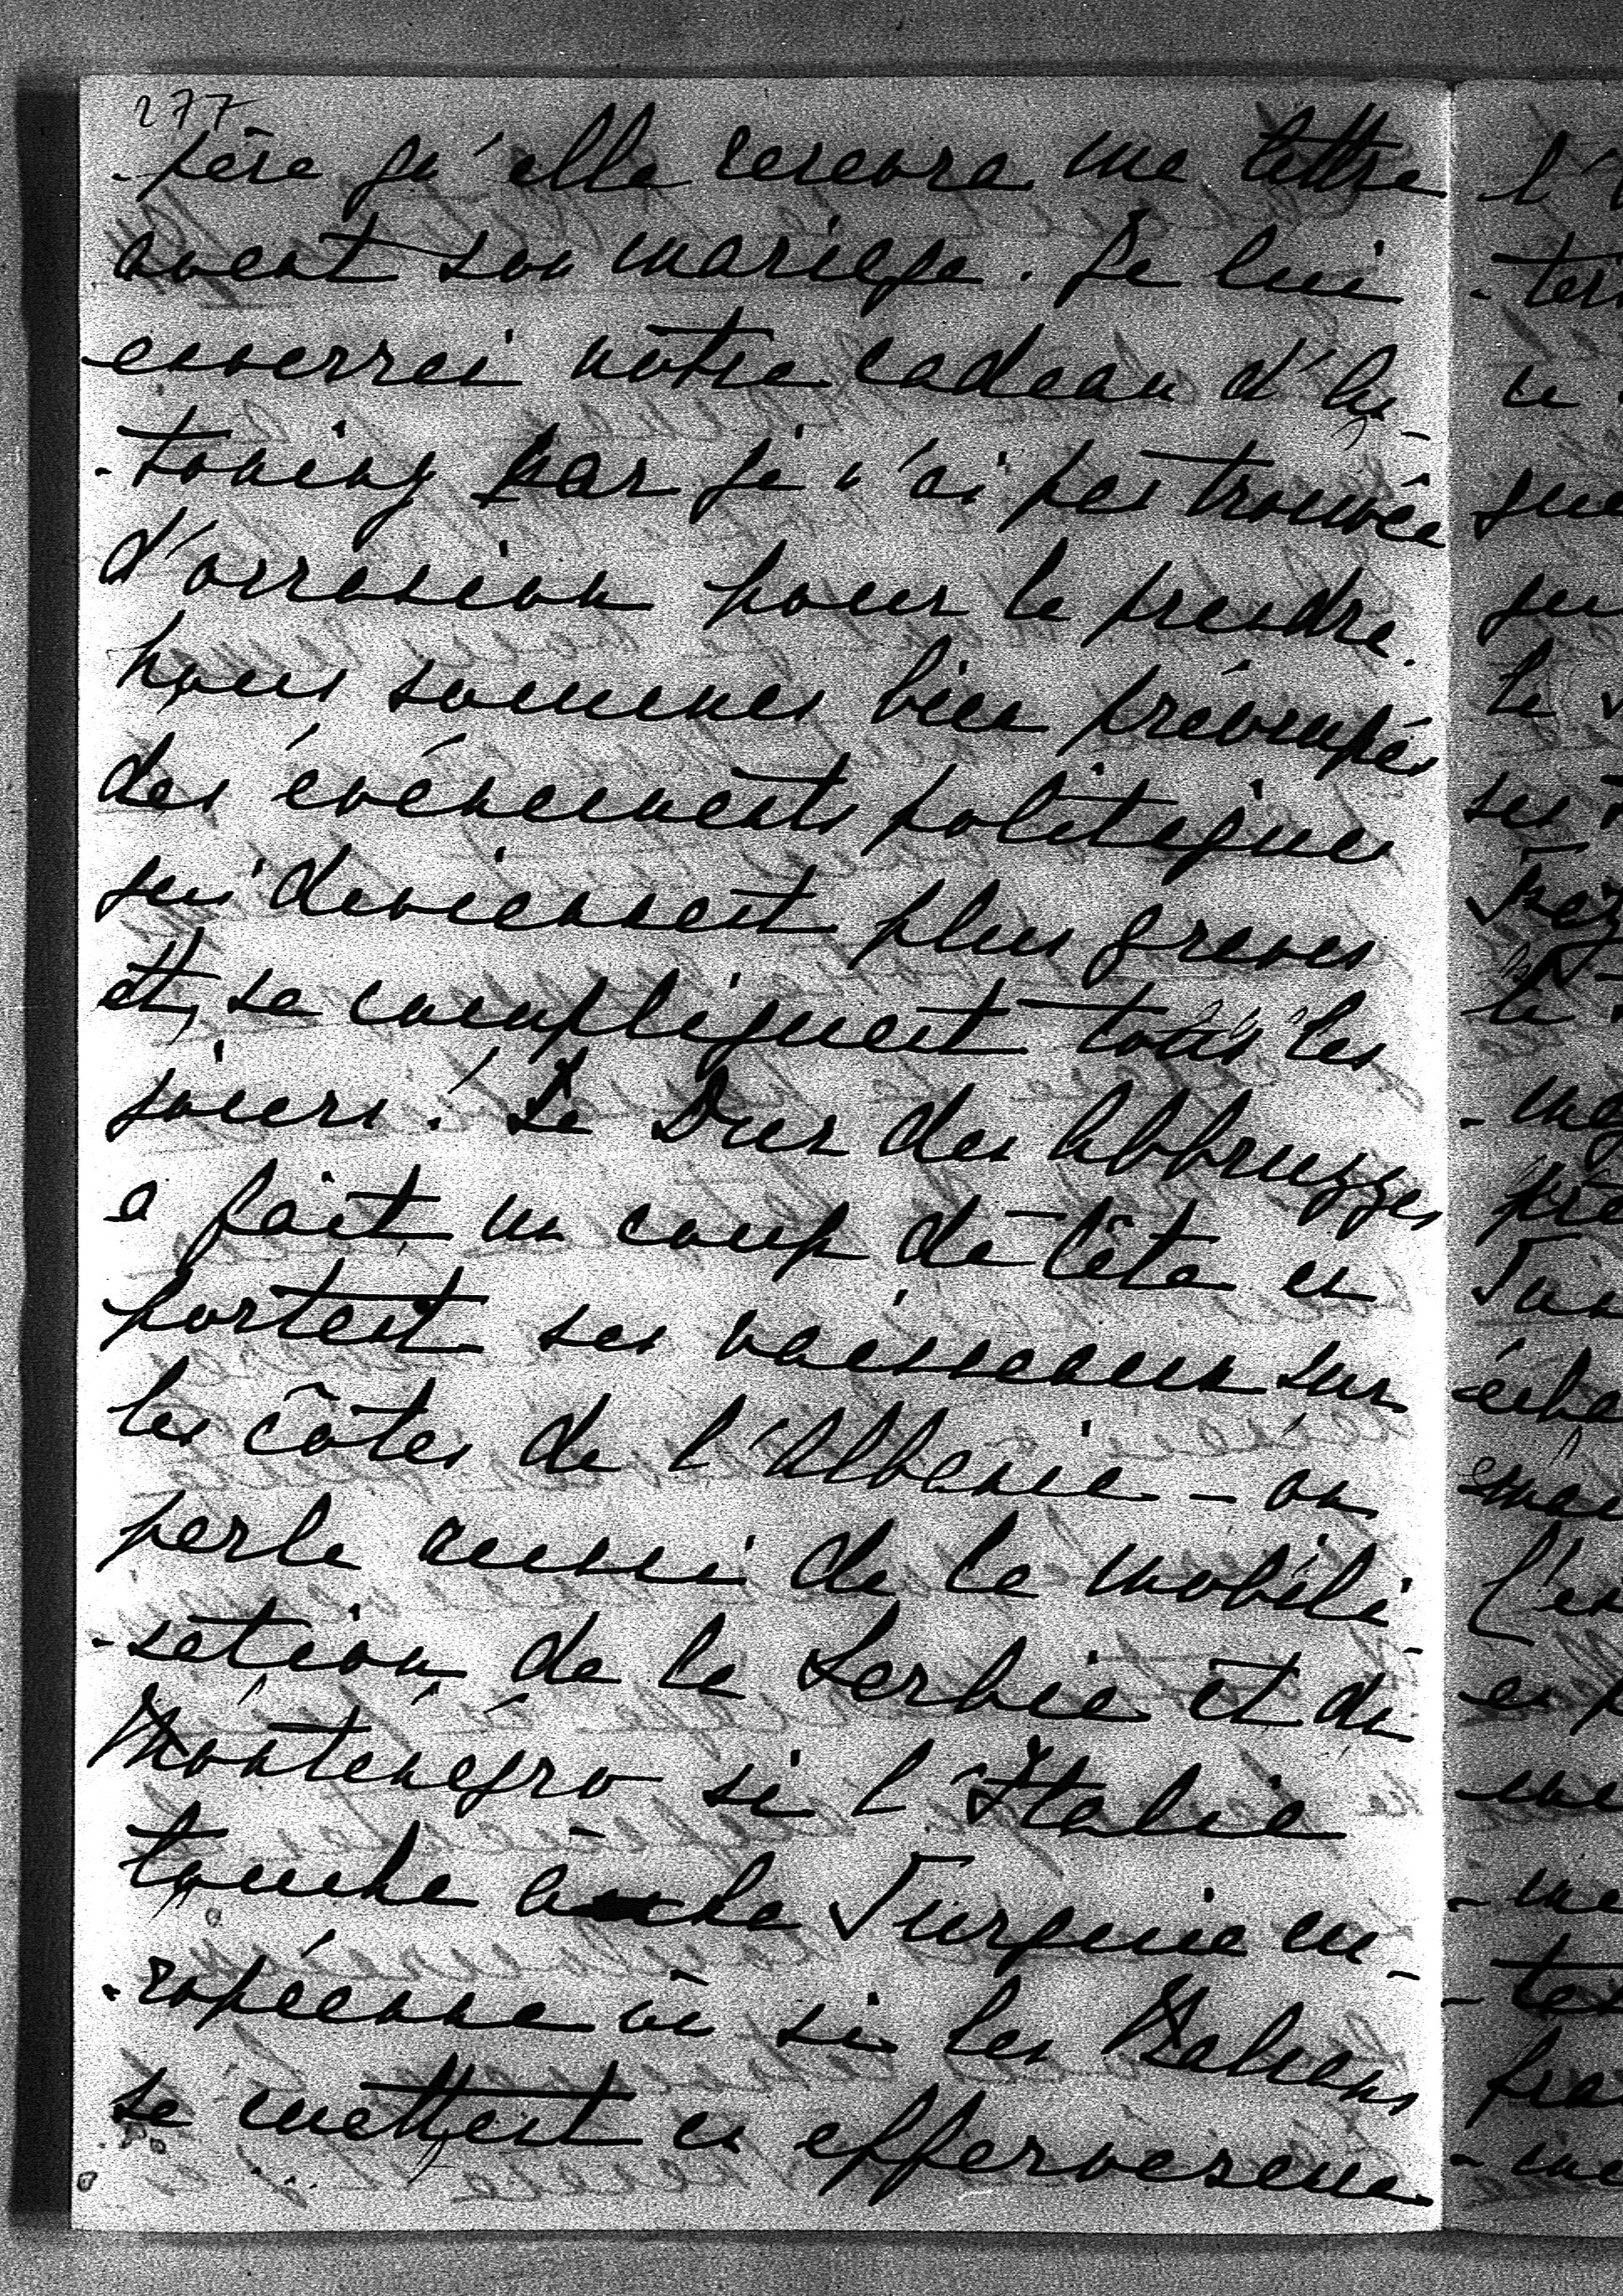 277
-père qu'elle recevra une lettre
avant son mariage. Je lui
enverrai notre cadeau d'An-
-toniny car je n'ai pas trouvée
d'occasion pour le prendre.
Nous sommes bien préocupés
des événements politiques
qui deviennent plus graves
et se compliquent tous les
jours! Le Duc des Abbruzzes
a fait un coup de tête en
portant ses vaisseaux sur
les côtes de l'Albanie - on
parle aussi de la mobili-
-sation de la Serbie et du
Monténégro si l'Italie
touche à la Turquie eu-
-ropéenne où si les Balcans
se mettent en effervescence